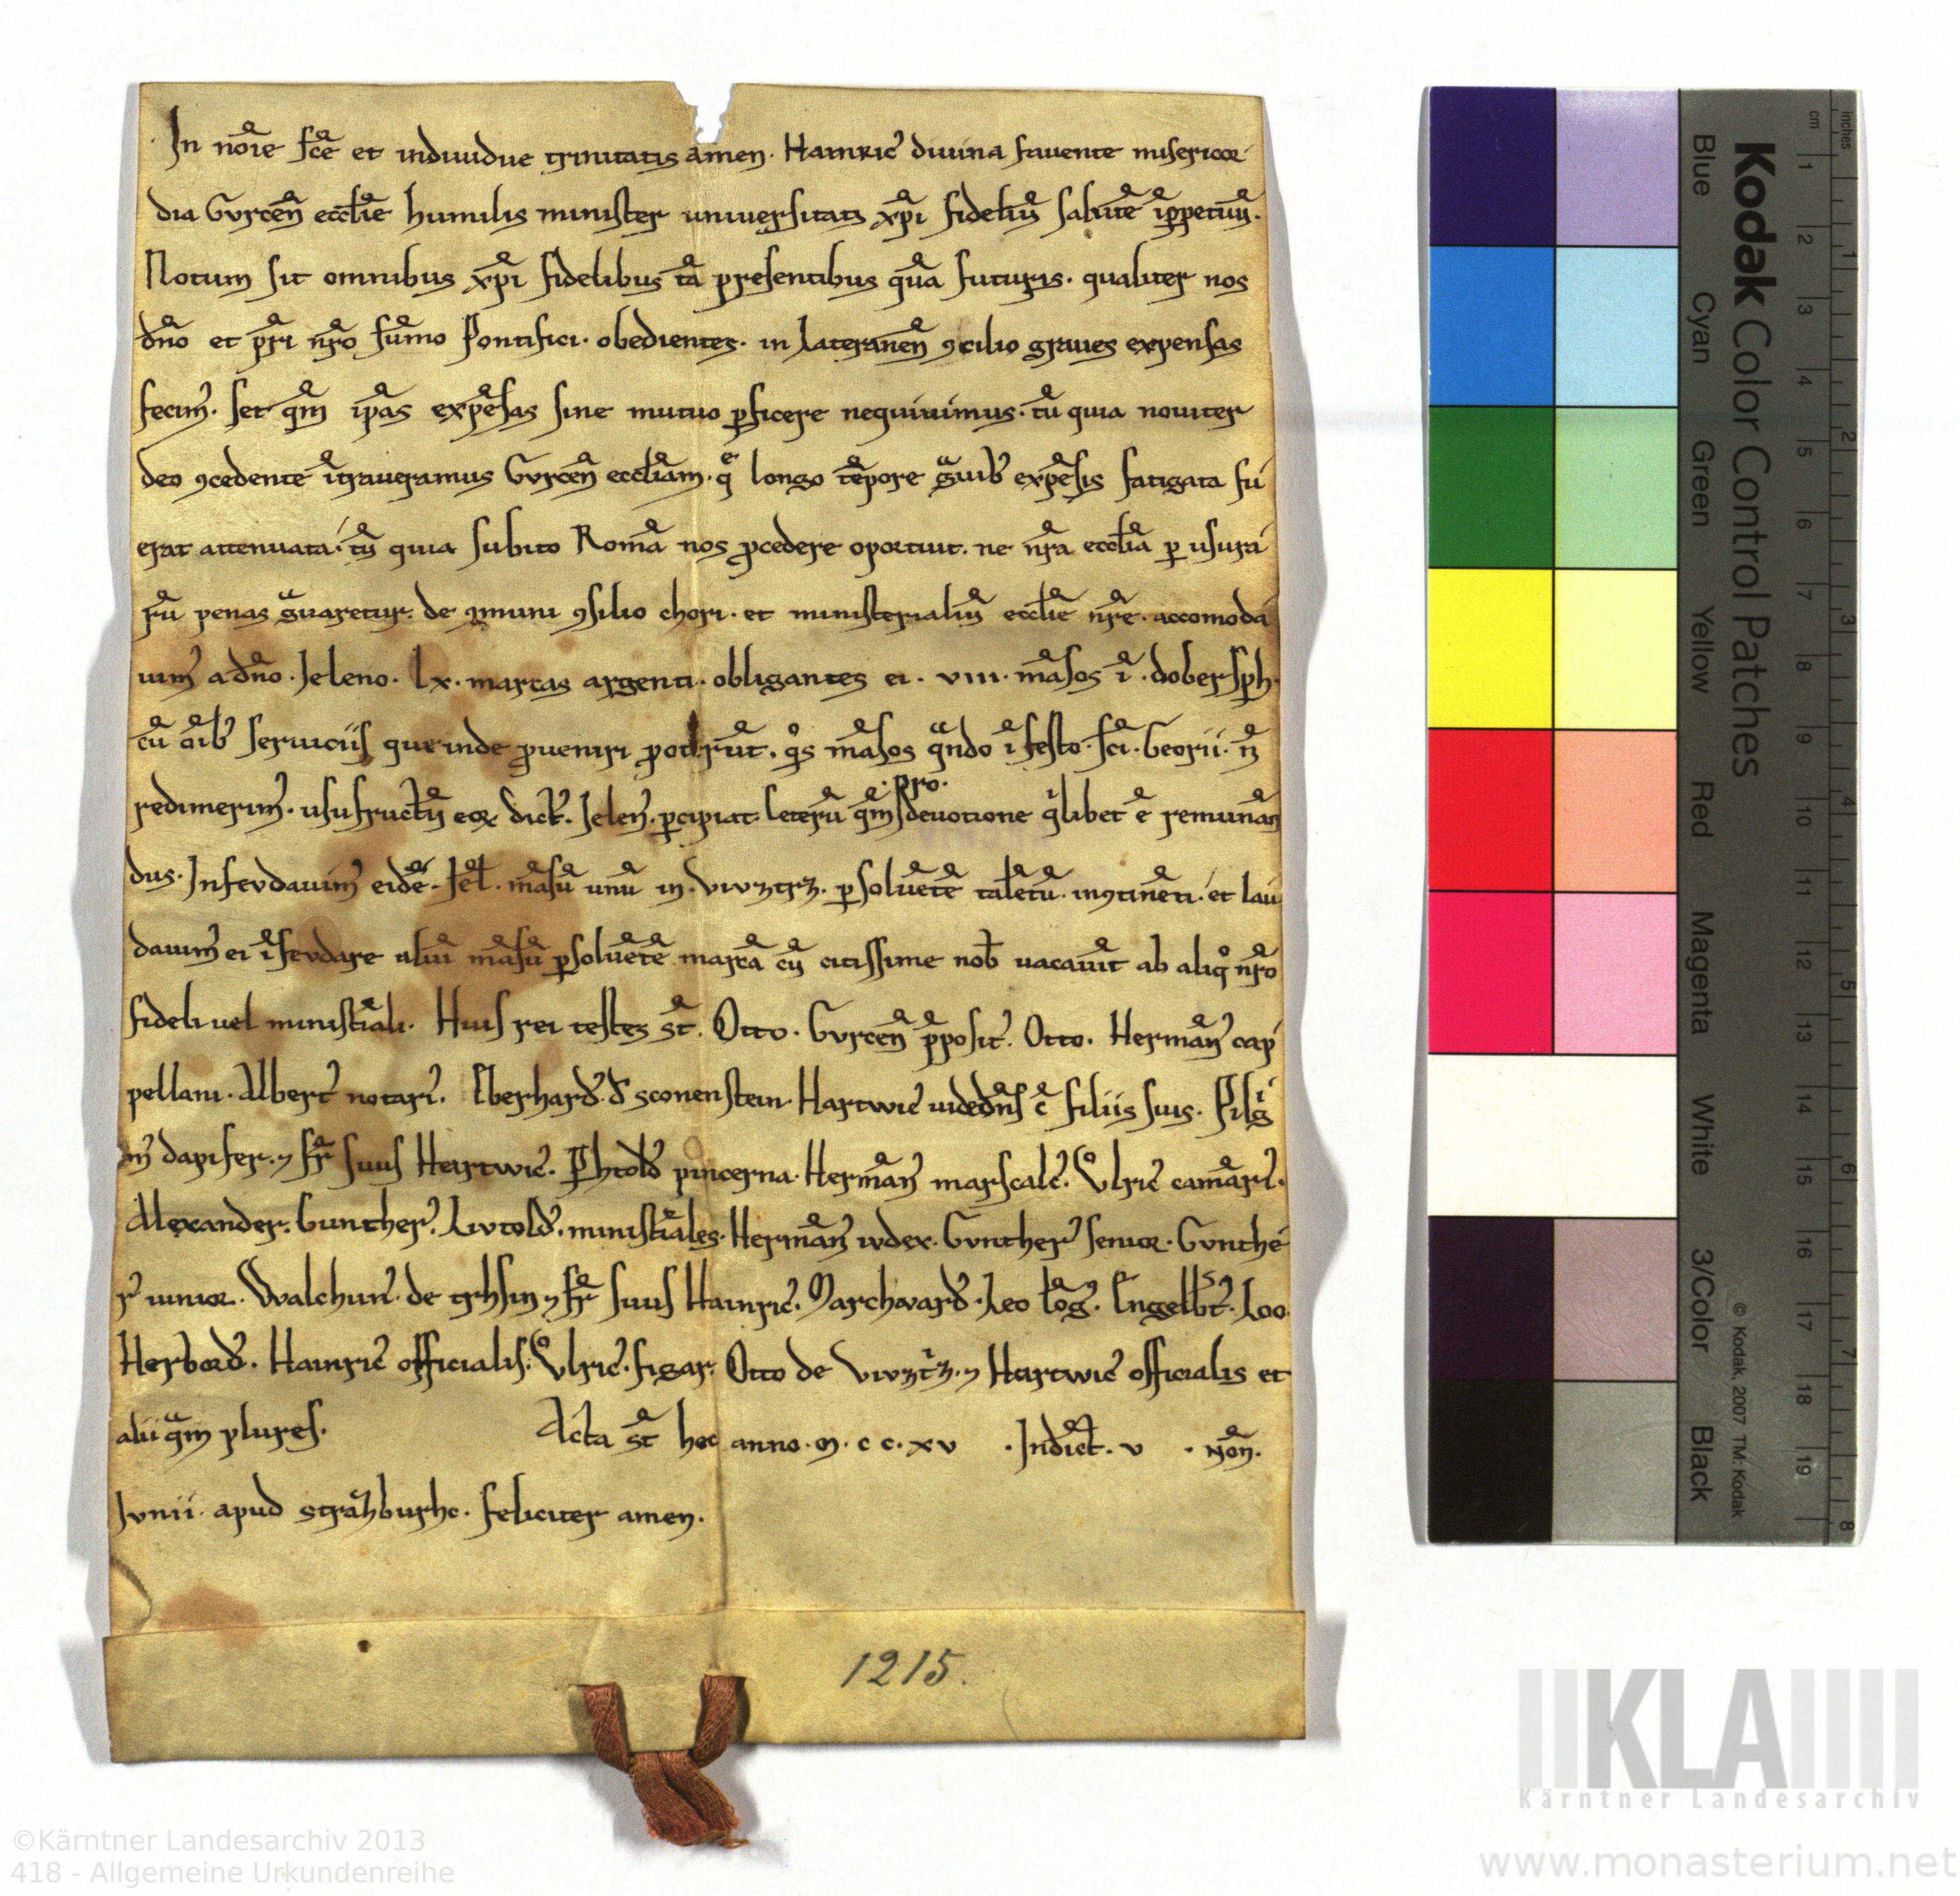 In nōie sc̄e et individue trinitatis amen. Hainric᾽ divina favente misericor
dia Gvrcen̄ eccl̄ie humilis minister universitati xp̄i fideliū salutē ip̄petuū.
Notum sit omnibus xp̄i fidelibus tā presentibus quā futuris. qualiter nos
dn̄o et pr̄i nr̄o sūmo Pontifici. obedientes. in Lateranen̄ ꝯcilio graves expensas
fecim᾽. set qm̄ ip̄as expēsas sine mutuo ꝑficere nequivimus. tū quia noviter
deo ꝯcedente ītraveramus Gvrcen̄ eccl̄iam. q̄ longo tēpore gͣvib᾽ expēsis fatigata fu
erat attenvata. tū quia subito Romā nos ꝓcedere oportuit. ne nr̄a eccl̄ia ꝑ usura
rū penas gͣvaretur. de ꝯmuni ꝯsilio chori. et ministerialiū eccl̄ie nr̄e. accomoda
vim᾽ a dn̄o. Jeleno. lx. marcas argenti. obligantes ei. viii. māsos ī. dobersph.
cū oīb᾽ serviciis que inde ꝓveniri potͤrūt. qͦs māsos qͣndo ī festo. sc̄i. Georii. n̄
redimerim᾽. usufructū eoꝝ dict᾽. Jelen᾽. ꝑcipiat. Ceterū qm̄ .pro. devotione qͥlibet ē remunēan
dus. Infevdavim᾽ eidē. Jel̄. māsū unū in. Vivztrz. ꝑsolvētē talētū. inꝯtinēti. et lau
davim᾽ ei īfevdare aliū māsū ꝑsolvētē marcā cū citissime nob̄ vacavīt ab aliqͦ nr̄o
fideli vel ministͥali. Huis rei testes st̄. Otto. Gvrcen̄ p̄posit᾽. Otto. Hermān᾽ cap
pellani. Albert᾽ notari᾽. Eberhard᾽. đ sconenstein. Hartwic᾽ vicedn̄s c̄ filiis suis. Pilgͥ
m᾽ dapifer. ⁊ fr̄ suus Hartwic᾽. P̱htold᾽ pincerna. Hermān᾽ marscalc᾽. Vͦlric᾽ camārī.
Alexander. Gunther᾽. Livtold᾽. ministͥales. Hermān᾽ ivdex. Gvnther᾽ senior. Gvnthe
r᾽ iunior. Walchun᾽. de trhsin ⁊ fr̄ suus Hainric᾽. Marchward᾽. Leo lōg᾽. Engelb̄t᾽. Loo.
Herbord᾽. Hainric᾽ officialis. Vͦlric᾽. figar. Otto de Vivzt̄z. ⁊ Hartwic᾽ officialis et
alii qͣm plures. Acta st̄ hec anno. m. c c. xv . Indict̄. v . non̄.
Ivnii. apud strazburhc. feliciter amen.
1215.
Kodak Color Control Patches
Blue Cyan Green Yellow Red Magenta White 3/Color Black
© Kodak, 2007 TM: Kodak
cm 1 2 3 4 5 6 7 8 9 10 11 12 13 14 15 16 17 18 19
inches 1 2 3 4 5 6 7 8
KLA
Kärntner Landesarchiv
©Kärntner Landesarchiv 2013
418 - Allgemeine Urkundenreihe
www.monasterium.net